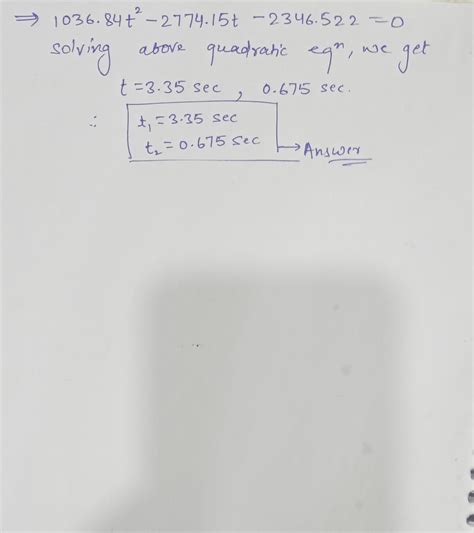 ⇒ 1036.84t² - 2774.15t - 2346.522 = 0
solving above quadratic eqⁿ, we get
t = 3.35 sec , 0.675 sec.
∴ t₁ = 3.35 sec
t₂ = 0.675 sec → Answer